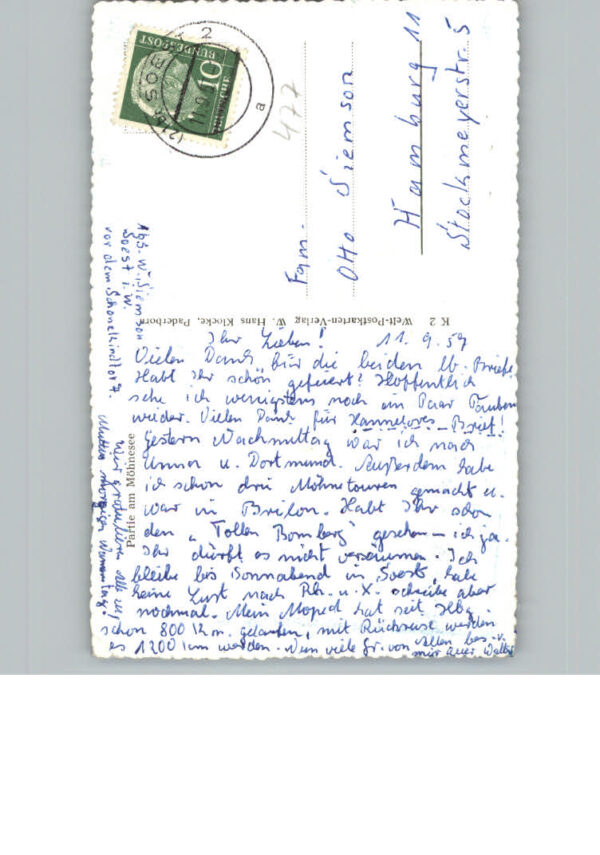 DEUTSCHE
BUNDESPOST
10
SOEST
2
a
477
Fam.
Otto Siemson
Hamburg 11
Stockmeyerstr. 5
K 2 Welt-Postkarten-Verlag W. Hans Klocke, Paderborn
Partie am Möhnesee
Abs. W. Siemson
Soest i. W.
vor dem Schonekindtor 7.
11. 9. 59
Ihr Lieben!
Vielen Dank für die beiden lb. Briefe
Habt Ihr schön gefeiert? Hoffentlich
sehe ich wenigstens noch ein Paar Tauben
wieder. Vielen Dank für Hannelores Brief!
Gestern Nachmittag war ich nach
Unna u. Dortmund. Außerdem habe
ich schon drei Möhnetouren gemacht u.
war in Brilon. Habt Ihr schon
den "Tollen Bomberg" gesehen – ich ja.
Ihr dürft es nicht versäumen. Ich
bleibe bis Sonnabend in Soest, habe
keine Lust nach Rh. u. X. schreibe aber
nochmal. Mein Moped hat seit Hbg.
schon 800 km. gelaufen, mit Rückreise werden
es 1200 km werden. Nun viele Gr. von Allen bes. v.
mir Euer Walter
Wir gratulieren alle zu
Mutters